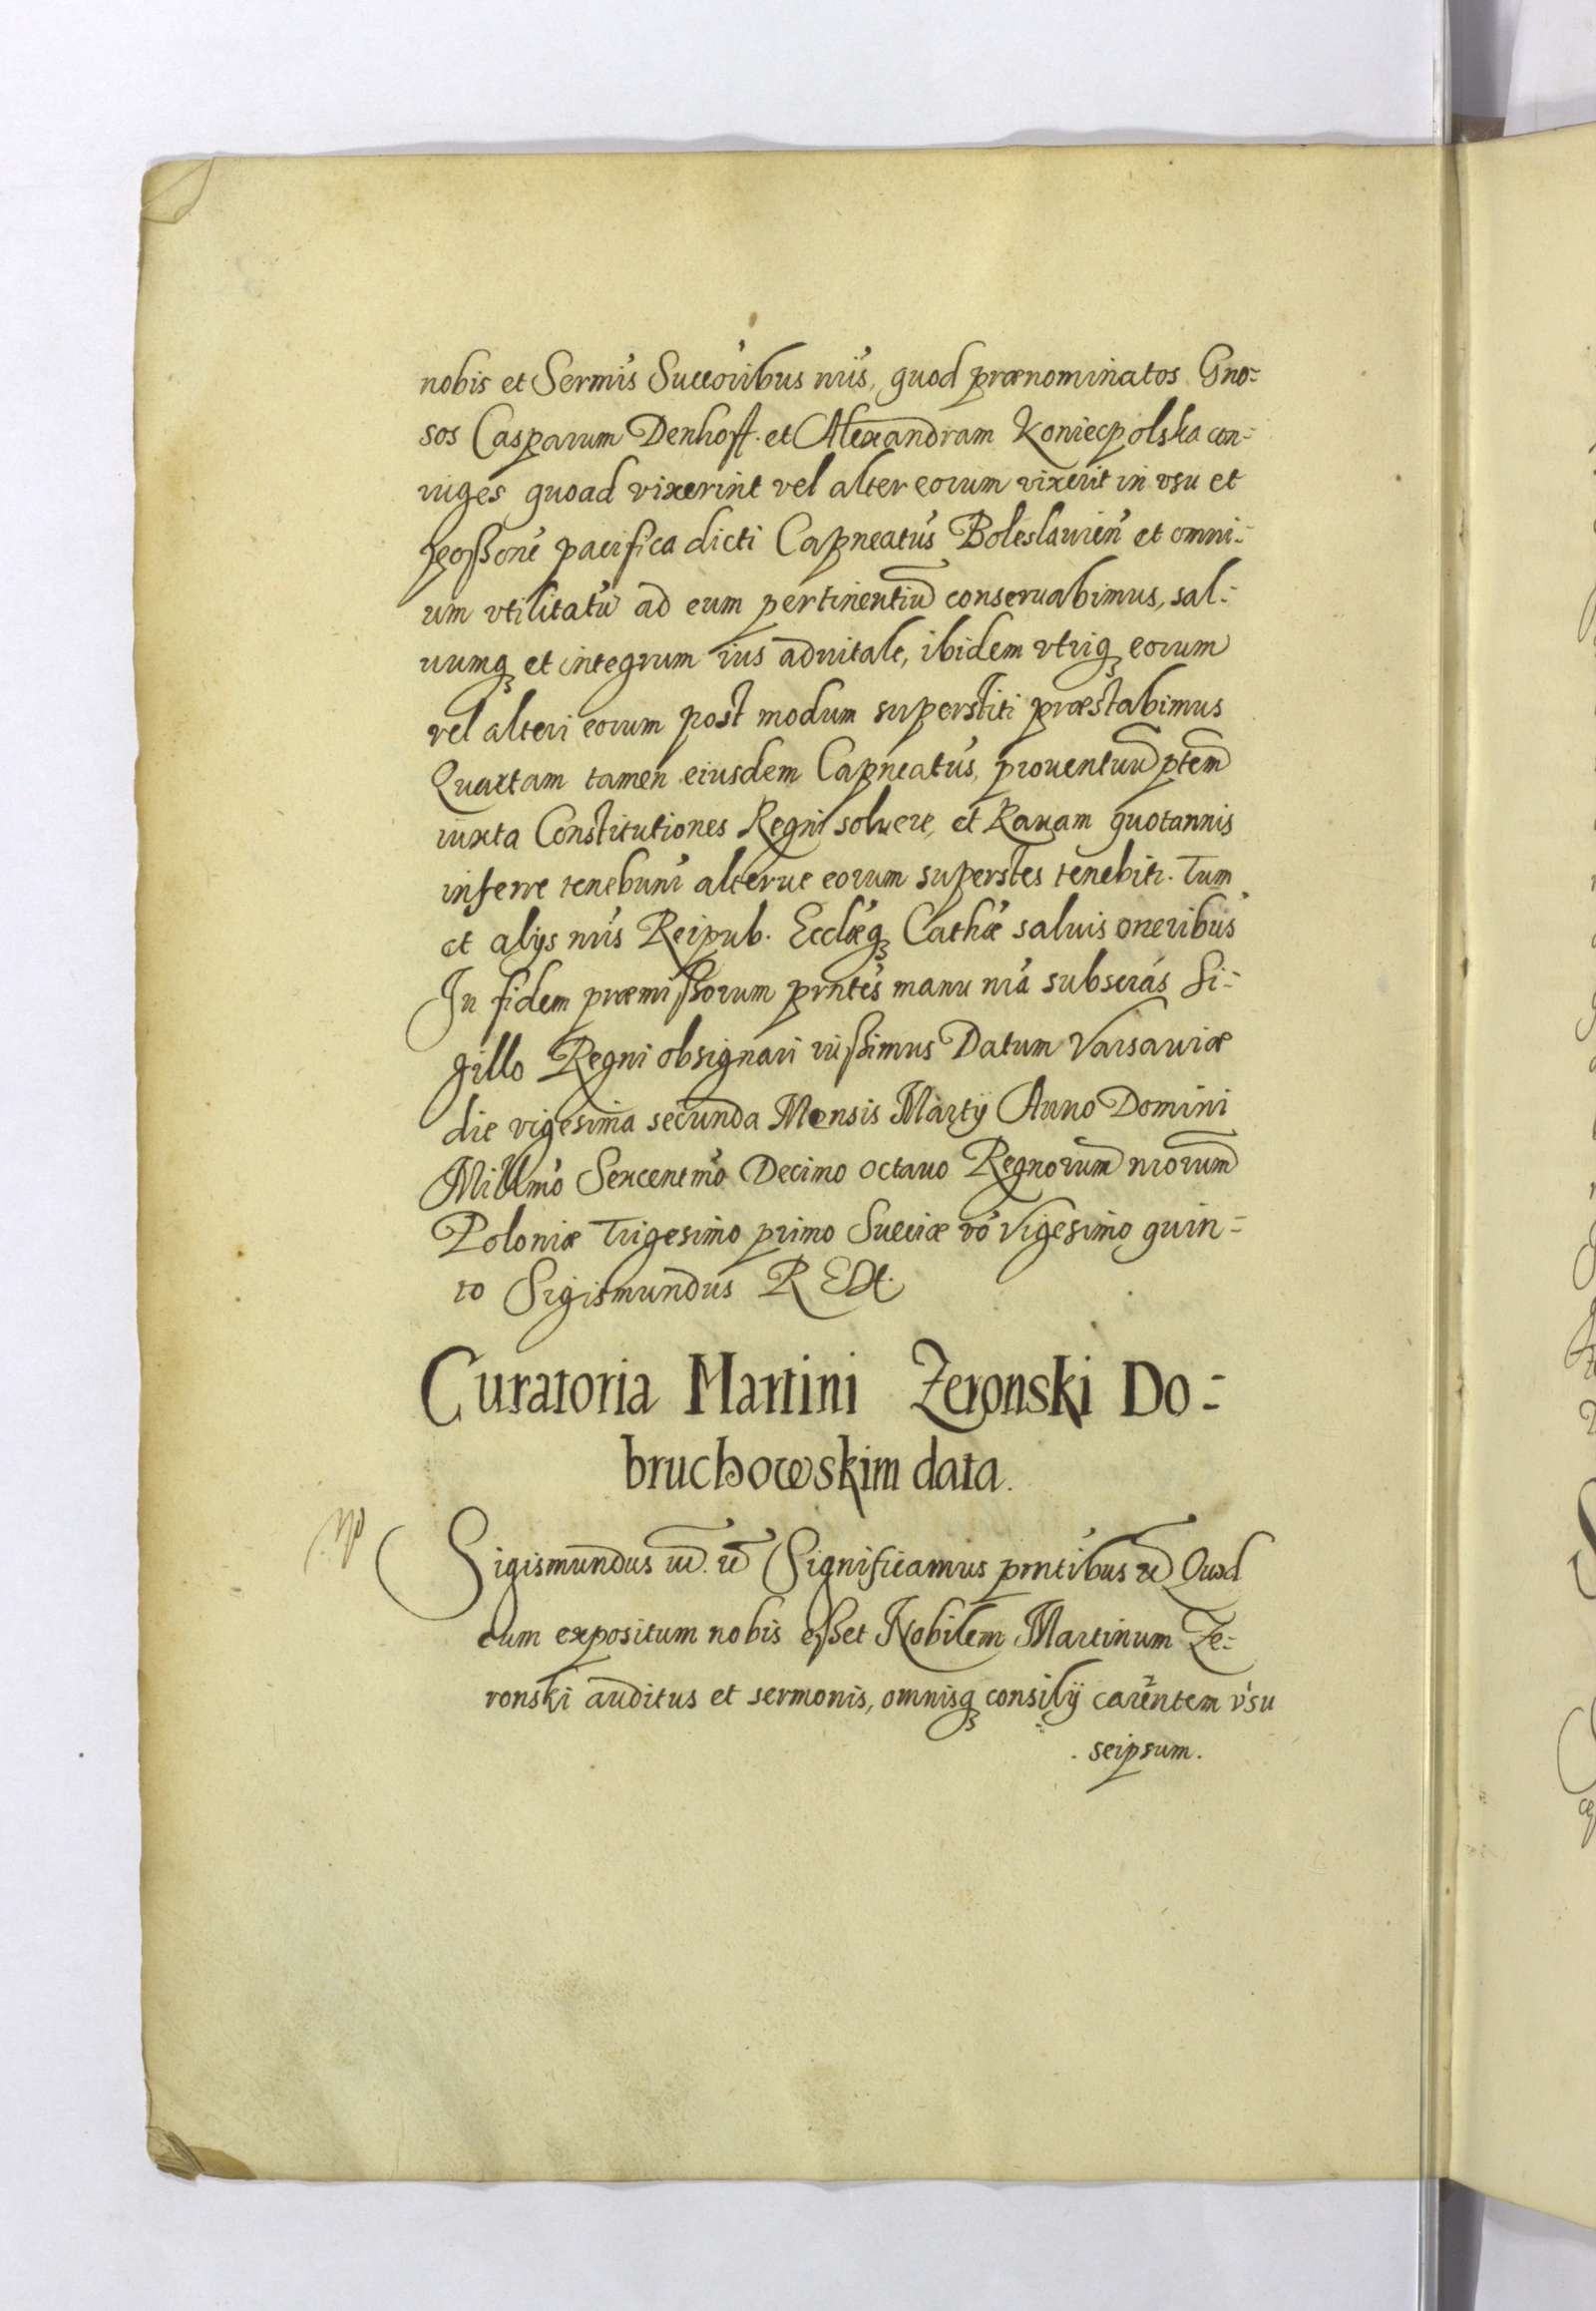 nobis et Sermis Succoribus nris, quod prænominatos Gno=
sos Casparum Denhoff. et Alexandram Koniecpolska con=
iuges quoad vixerint vel alter eorum vixerit in vsu et
possone pacifica dicti Capneatus Boleslauien et omni=
um vtilitatu ad eum pertinentiu conseruabimus, sal=
uumq et integrum ius aduitale, ibidem vtriq eorum
vel alteri eorum post modum superstiti præstabimus
Quartam tamen eiusdem Capneatus, prouentuu ptem
iuxta Constitutiones Regni soluere, et Rauam quotannis
inferre tenebunr alterue eorum superstes tenebitr. Tum
et alijs nris Reipub. Ecclæq Cathæ saluis oneribus
In fidem præmissorum prntes manu nra subscras Si=
gillo Regni obsignari iussimus Datum Varsauiæ
die vigesima secunda Mensis Martij Anno Domini
Millmo Sexcentmo Decimo octauo Regnorum nrorum
Poloniæ Trigesimo primo Sueciæ vo Vigesimo quin=
to Sigismundus R
Curatoria Martini Zeronski Do=
bruchowskim data.
Sigismundus Significamus prntibus Quod
cum expositum nobis esset Nobilem Martinum Ze=
ronski auditus et sermonis, omnisq consilij carentem vsu
seipsum.